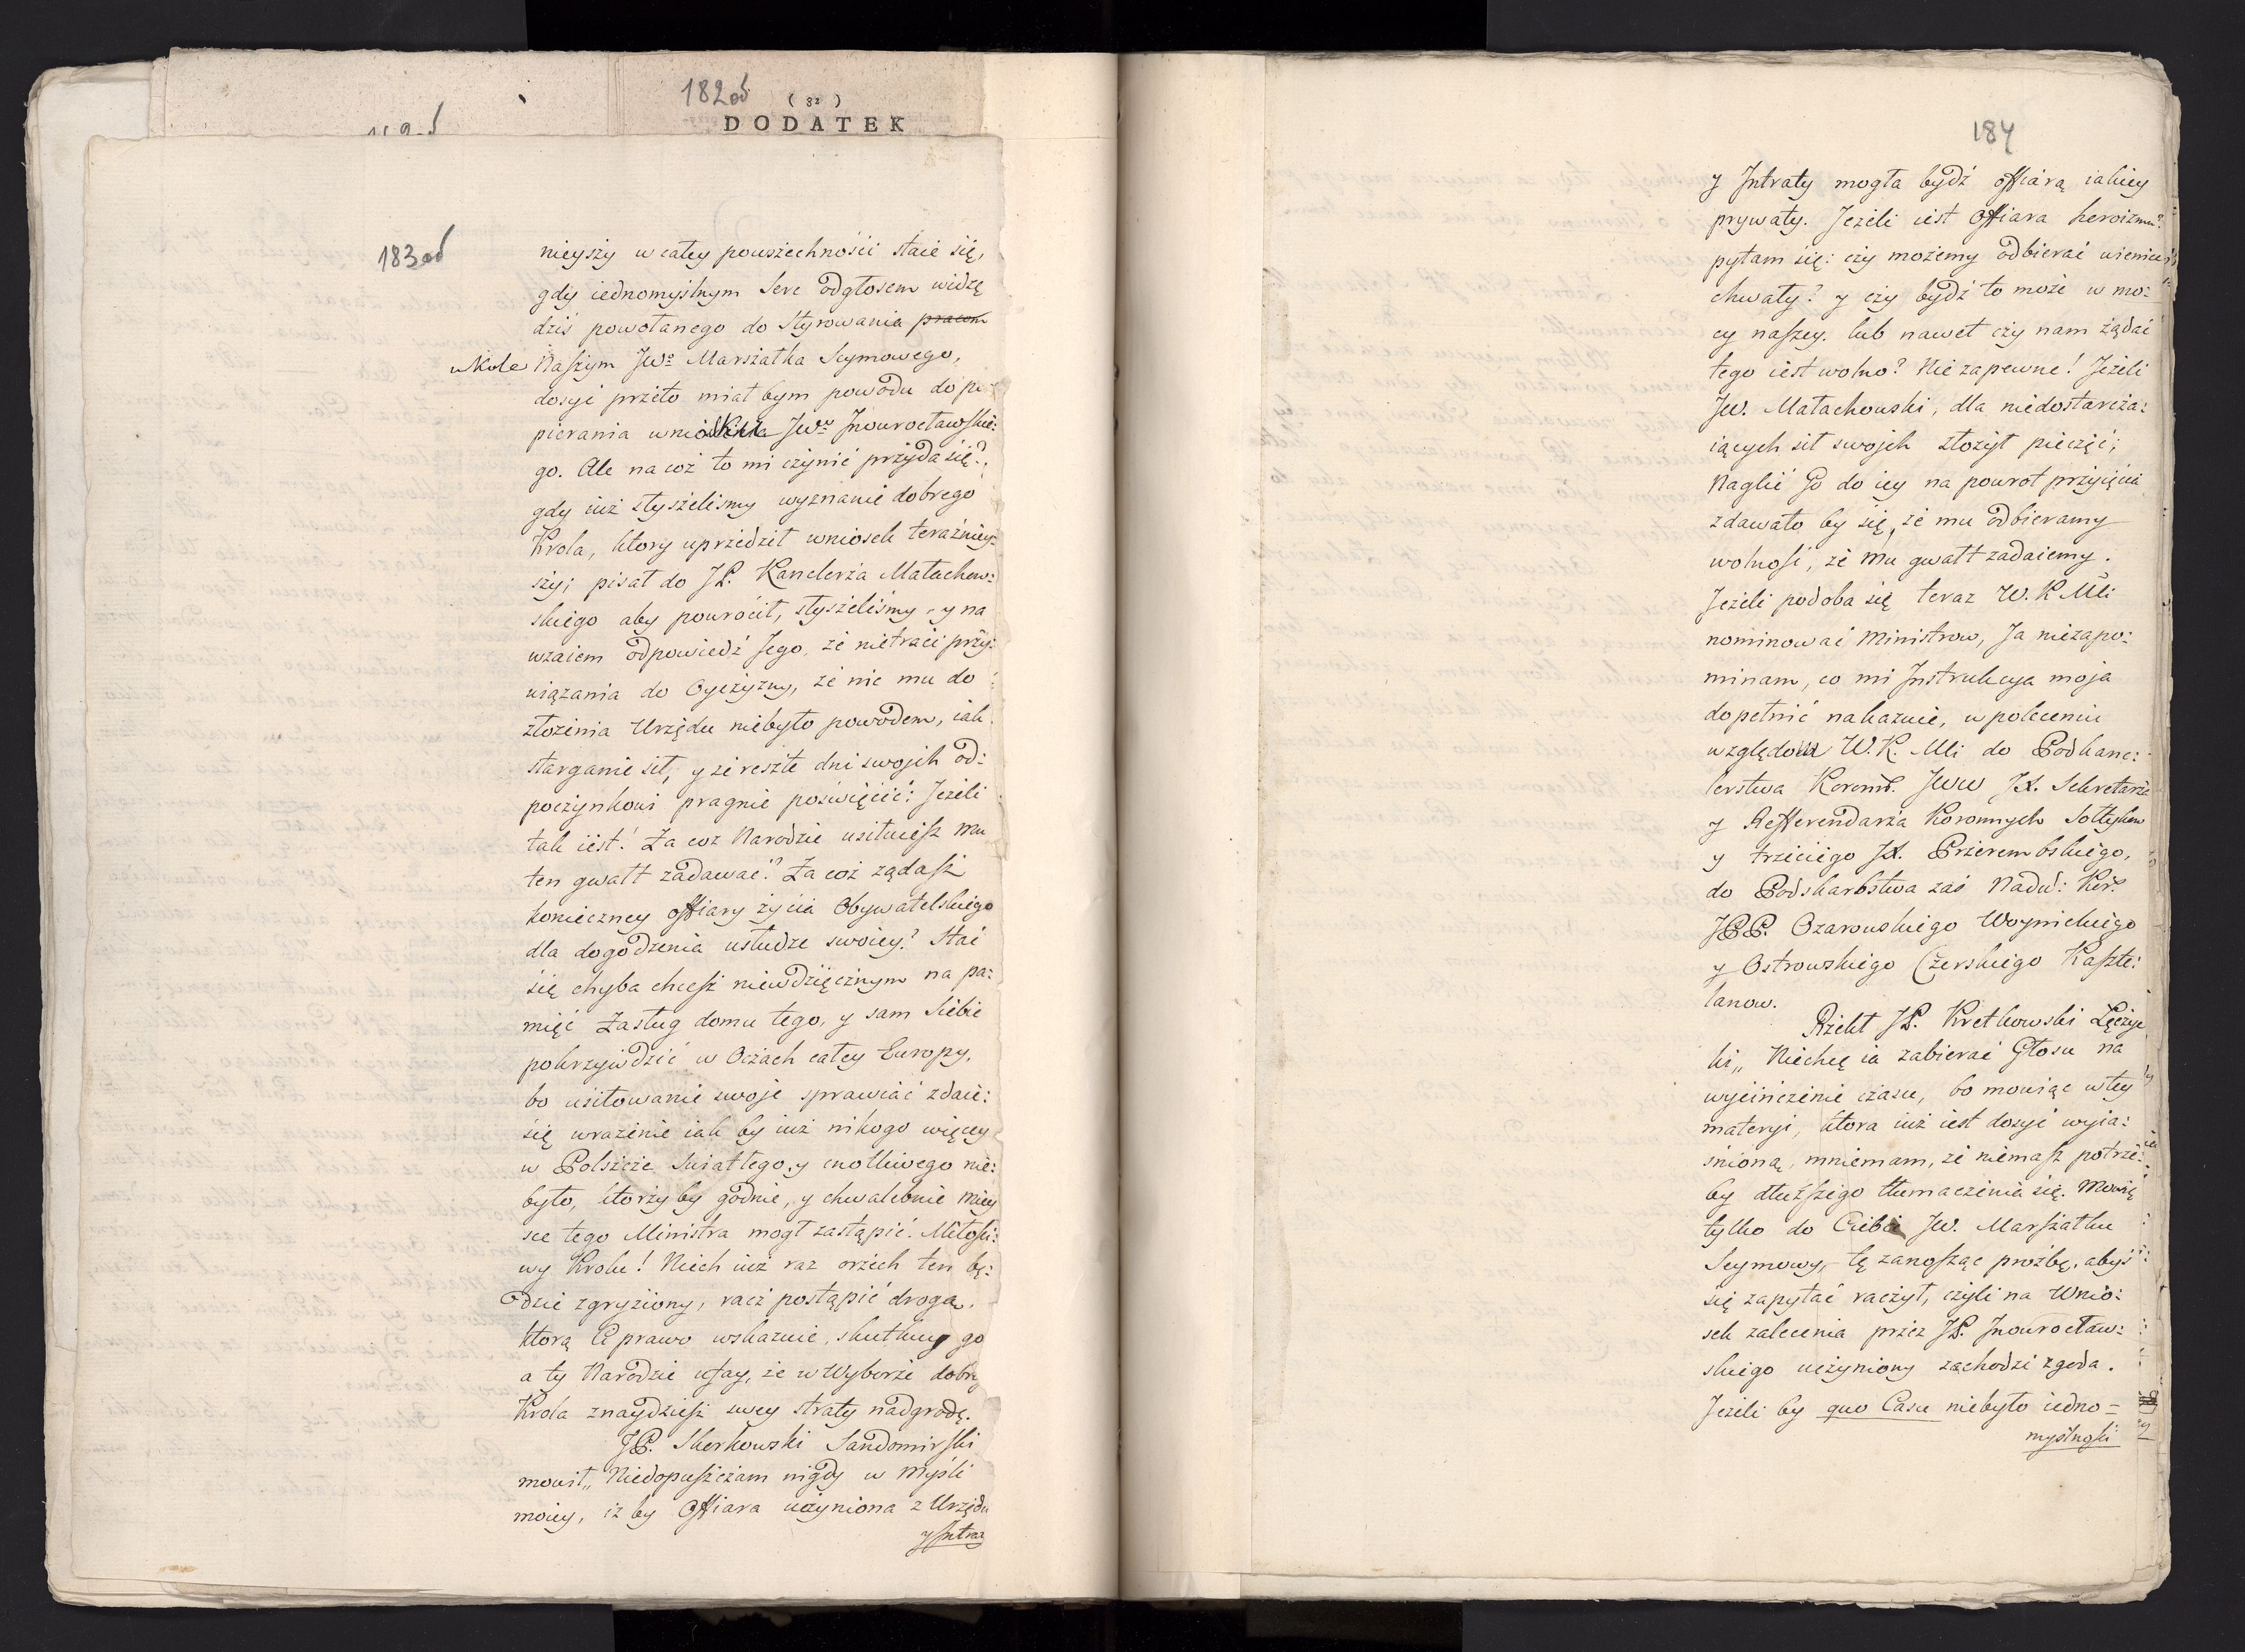 182od
( 32 )
DODATEK
183od
nieyszy w całey powszechności staie się,
gdy iednomyślnym Serc odgłosem widzę
dziś powołanego do styrowania pracom
w Kole Naszym JWo Marszałka Seymowego,
dosyć przeto miał bym powodu do po
pierania wnioska JWo Inowrocławskie:
go. Ale na coż to mi czynić przyda się?
gdy iuż słyszelismy wyznanie dobrego
Krola, ktory uprzedził wniosek teraźniey:
szy; pisał do JP. Kanclerza Małachow:
skiego aby powrócił, słyszeliśmy y na
wzaiem odpowiedź Jego, że nietraci przy:
wiązania do Oyczyzny, że nic mu do
złożenia Urzędu niebyło powodem, iak
starganie sił, y że reszte dni swojch od:
poczynkowi pragnie poswięcić: Jeżeli
tak iest! Za coz Narodzie usiłuiesz mu
ten gwałt zadawać? Za coż ządasz
konieczney offiary życia Obywatelskiego
dla dogodzenia usłudze swoiey? Stać
się chyba chcesz niewdzięcznym na pa:
mięć Zasług domu tego, y sam Siebie
pokrzywdzić w Oczach całey Europy,
bo usiłowanie swoje sprawiać zdaie:
się wrażenie iak by iuż nikogo więcey
w Polszcze Swiatłego, y cnotliwego nie:
było, ktorzy by godnie, y chwalebnie miey
sce tego Ministra mogł zastąpić. Miłości:
wy Krolu! Niech iuż raz orzech ten bę:
dzie zgryziony, racz postąpić drogą,
ktorą Ci prawo wskazuie, skutkuy go
a ty Narodzie ufay, że w Wyborze dobre
Krola znaydziesz swey straty nadgrodę.
JP. Skorkowski Sandomirski
mowił,, Niedopuszczam nigdy w Myśli
moiey, iż by Offiara uczyniona z Urzędu
y Intra
184
y Intraty mogła bydź offiarą iakiey
prywaty. Jeżeli iest Offiara heroizmu?
pytam się: czy możemy odbierać wieniec
chwały? y czy bydź to może w mo:
cy naszey. lub nawet czy nam żądać
tego iest wolno? Nie zapewne! Jeżeli
JW. Małachowski, dla niedostarcza:
iących sił swojch złożył pieczęć;
Naglić Go do iey na powrot przyięcia
zdawało by się, że mu odbieramy
wolność, że Mu gwałt zadaiemy.
Jeżeli podoba się teraz W. K Mci
nominować Ministrow, Ja niezapo:
minam, co mi Instrukcya moja
dopełnić nakazuie, w poleceniu
względom W. K. Mci do Podkanc:
lerstwa Koronn. JWW JX. Sekretarza
y Refferendarza Koronnych Sołtykow
y trzeciego JX. Przerembskiego,
do Podskarbstwa zaś Nadw: Kor.
JPP. Ozarowskiego Woynickiego
y Ostrowskiego Czerskiego Kaszte:
lanow.
Rzekł JP. Kretkowski Łęczyc
ki,, Niechcę ia zabierać Głosu na
wycieńczenie czasu, bo mowiąc w tey
materyi, ktora iuż iest dosyć wyia:
śnioną, mniemam, że niemasz potrze:
by dłuższego tłumaczenia się. Mowię
tylko do Ciebie JW. Marszałku
Seymowy, tę zanosząc proźbę, abyś
się zapytać raczył, czyli na Wnio:
sek zalecenia przez JP. Inowrocław:
skiego uczyniony zachodzi zgoda.
Jeżeli by quo Casu niebyło iedno=
myślności